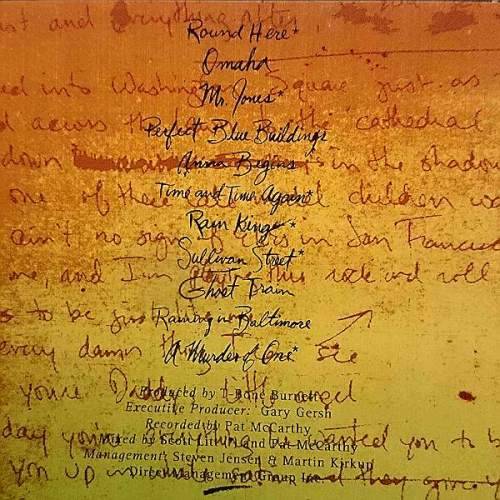 and Everything After,
Round Here*
Omaha
into Washington Square just as
Mr. Jones*
across the cathedral
Perfect Blue Buildings
down in the shadow
Anna Begins
one of these children
Time and Time Again*
Rain King*
ain't no sign of in San Francisco
Sullivan Street*
and I'm this rock and roll
Ghost Train
to be just
Raining in Baltimore
every damn see
A Murder of One*
you're Daddy's little angel
Produced by T-Bone Burnett
Executive Producer: Gary Gersh
Recorded by Pat McCarthy
day you wanted you to
Mixed by Scott Litt and Pat McCarthy
Management: Steven Jensen & Martin Kirkup
you up in and they
Direct Management Group Inc.